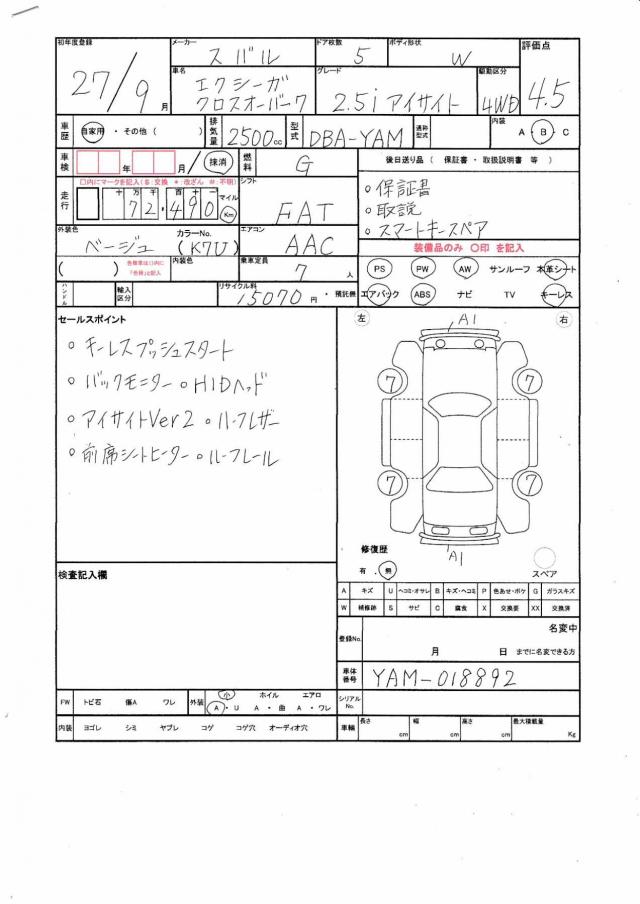 初年度登録 メーカー スバル ドア枚数 5 ボディ形状 W 評価点
27/9月 車名 エクシーガ クロスオーバー7 グレード 2.5i アイサイト 駆動区分 4WD 4.5
車歴 自家用・その他( ) 排気量 2500cc 型式 DBA-YAM 通称型式 内装 A・B・C
車検 年 月/ 抹消 燃料 G 後日送り品( 保証書・取扱説明書 等 )
走行 □内にマークを記入(S:交換 *:改ざん #:不明) シフト
十万 千 百 十 一 マイル Km
72,490 FAT
○保証書
○取説
○スマートキースペア
外装色 ベージュ カラーNo. (K7U) エアコン AAC 装備品のみ 〇印 を記入
( ) 内装色 乗車定員 7人 PS PW AW サンルーフ 本革シート
ハンドル 輸入区分 リサイクル料 15070円・預託機 エアバック ABS ナビ TV キーレス
セールスポイント
○キーレスプッシュスタート
○バックモニター ○HIDヘッド
○アイサイトVer2 ○ハーフレザー
○前席シートヒーター ○ルーフレール
左 A1 右
7 7
7 7
A1
修復歴
有・無 スペア
検査記入欄
A キズ U ヘコミ・オサレ B キズ・ヘコミ P 色あせ・ボケ G ガラスキズ
W 補修跡 S サビ C 腐食 X 交換要 XX 交換済
登録No. 名変中
月 日 までに名変できる方
車体番号 YAM-018892
FW トビ石 傷A ワレ 外装 小 ホイル エアロ シリアルNo.
A・U A・曲 A・ワレ
内装 ヨゴレ シミ ヤブレ コゲ コゲ穴 オーディオ穴 車輛 長さ cm 幅 cm 高さ cm 最大積載量 Kg